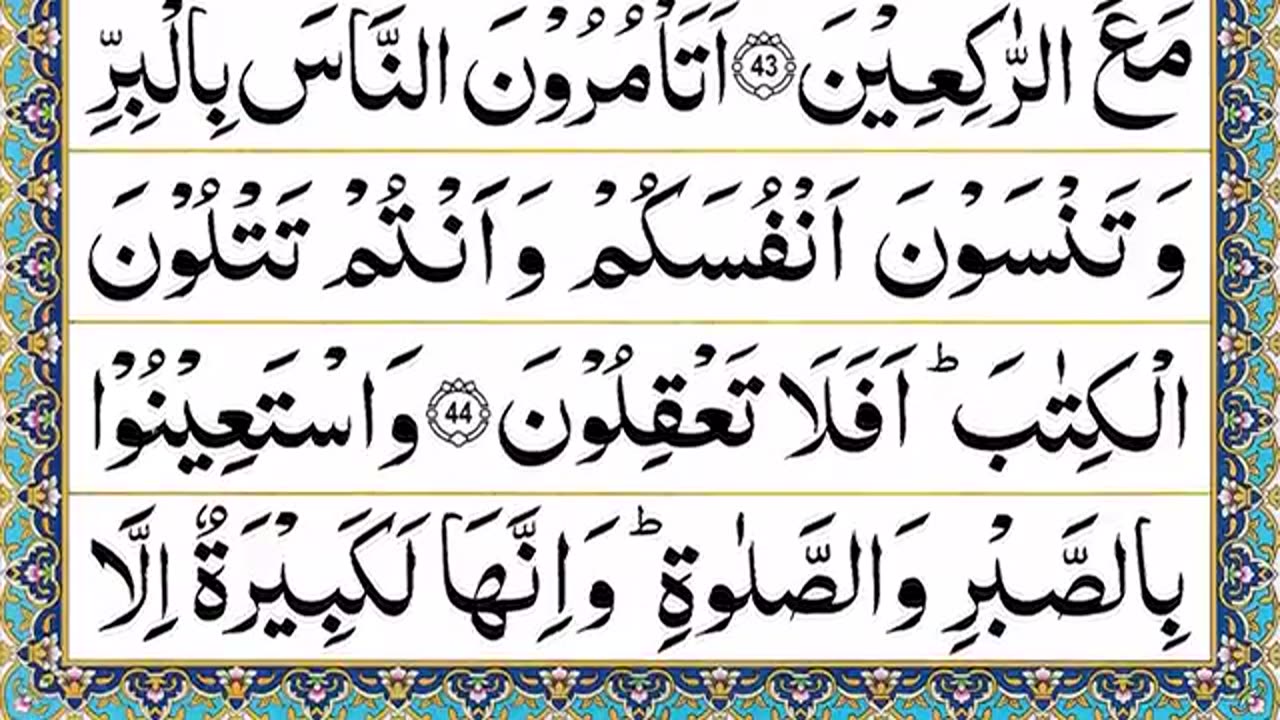 مَعَ الرّٰكِعِيْنَ 43 اَتَاْمُرُوْنَ النَّاسَ بِالْبِرِّ
وَ تَنْسَوْنَ اَنْفُسَكُمْ وَ اَنْتُمْ تَتْلُوْنَ
الْكِتٰبَ ؕ اَفَلَا تَعْقِلُوْنَ 44 وَ اسْتَعِيْنُوْا
بِالصَّبْرِ وَ الصَّلٰوةِ ؕ وَ اِنَّهَا لَكَبِيْرَةٌ اِلَّا